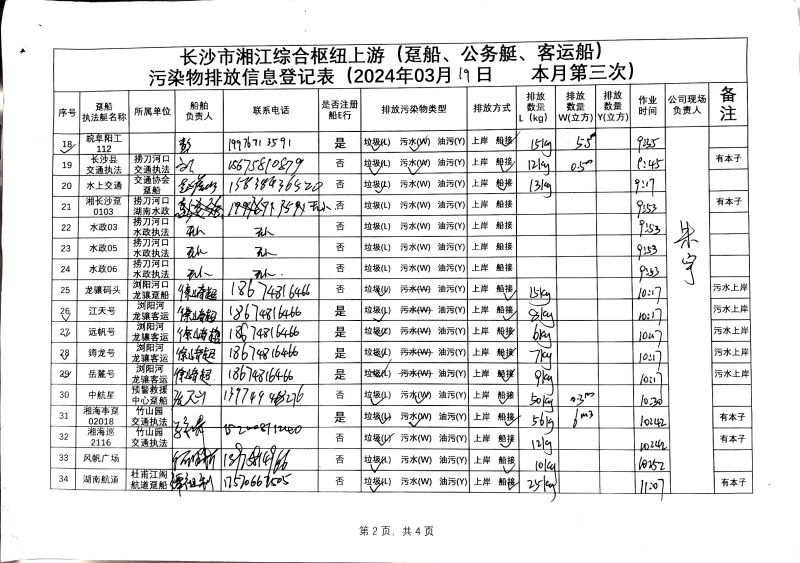 长沙市湘江综合枢纽上游（趸船、公务艇、客运船）
污染物排放信息登记表（2024年03月19日 本月第三次）
序号 趸船执法艇名称 所属单位 船舶负责人 联系电话 是否注册船E行 排放污染物类型 排放方式 排放数量L（kg） 排放数量W(立方) 排放数量Y(立方) 作业时间 公司现场负责人 备注
18 皖阜阳工112 19976713591 是 垃圾(L) 污水(W) 油污(Y) 上岸 船接 15kg 5.5m³ 9:35
19 长沙县交通执法 捞刀河口交通执法 15675810879 否 垃圾(L) 污水(W) 油污(Y) 上岸 船接 12kg 0.5m³ 9:45 有本子
20 水上交通 交通协会趸船 否 垃圾(L) 污水(W) 油污(Y) 上岸 船接 13kg 9:17
21 湘长沙趸0103 捞刀河口湖南水政 无人 否 垃圾(L) 污水(W) 油污(Y) 上岸 船接 9:53 有本子
22 水政03 捞刀河口水政执法 无人 无人 否 垃圾(L) 污水(W) 油污(Y) 上岸 船接 9:53
23 水政05 捞刀河口水政执法 无人 无人 否 垃圾(L) 污水(W) 油污(Y) 上岸 船接 9:53
24 水政06 捞刀河口水政执法 无人 无人 否 垃圾(L) 污水(W) 油污(Y) 上岸 船接 9:53
朱宇
25 龙骧码头 浏阳河口龙骧趸船 18674816466 否 垃圾(L) 污水(W) 油污(Y) 上岸 船接 15kg 10:17 污水上岸
26 江天号 浏阳河龙骧客运 18674816466 是 垃圾(L) 污水(W) 油污(Y) 上岸 船接 8kg 10:17 污水上岸
27 远帆号 浏阳河龙骧客运 18674816466 是 垃圾(L) 污水(W) 油污(Y) 上岸 船接 6kg 10:17 污水上岸
28 鹁龙号 浏阳河龙骧客运 18674816466 是 垃圾(L) 污水(W) 油污(Y) 上岸 船接 7kg 10:17 污水上岸
29 岳麓号 浏阳河龙骧客运 18674816466 是 垃圾(L) 污水(W) 油污(Y) 上岸 船接 9kg 10:17 污水上岸
30 中航星 预警救援中心趸船 否 垃圾(L) 污水(W) 油污(Y) 上岸 船接 50kg 0.3m³ 10:30
31 湘海事趸02018 竹山园交通执法 是 垃圾(L) 污水(W) 油污(Y) 上岸 船接 56kg 6m³ 10:42 有本子
32 湘海巡2116 竹山园交通执法 否 垃圾(L) 污水(W) 油污(Y) 上岸 船接 12kg 10:42 有本子
33 风帆广场 否 垃圾(L) 污水(W) 油污(Y) 上岸 船接 10kg 10:52
34 湖南航道 杜甫江阁航道趸船 17520667505 否 垃圾(L) 污水(W) 油污(Y) 上岸 船接 25kg 11:07 有本子
第 2 页、共 4 页